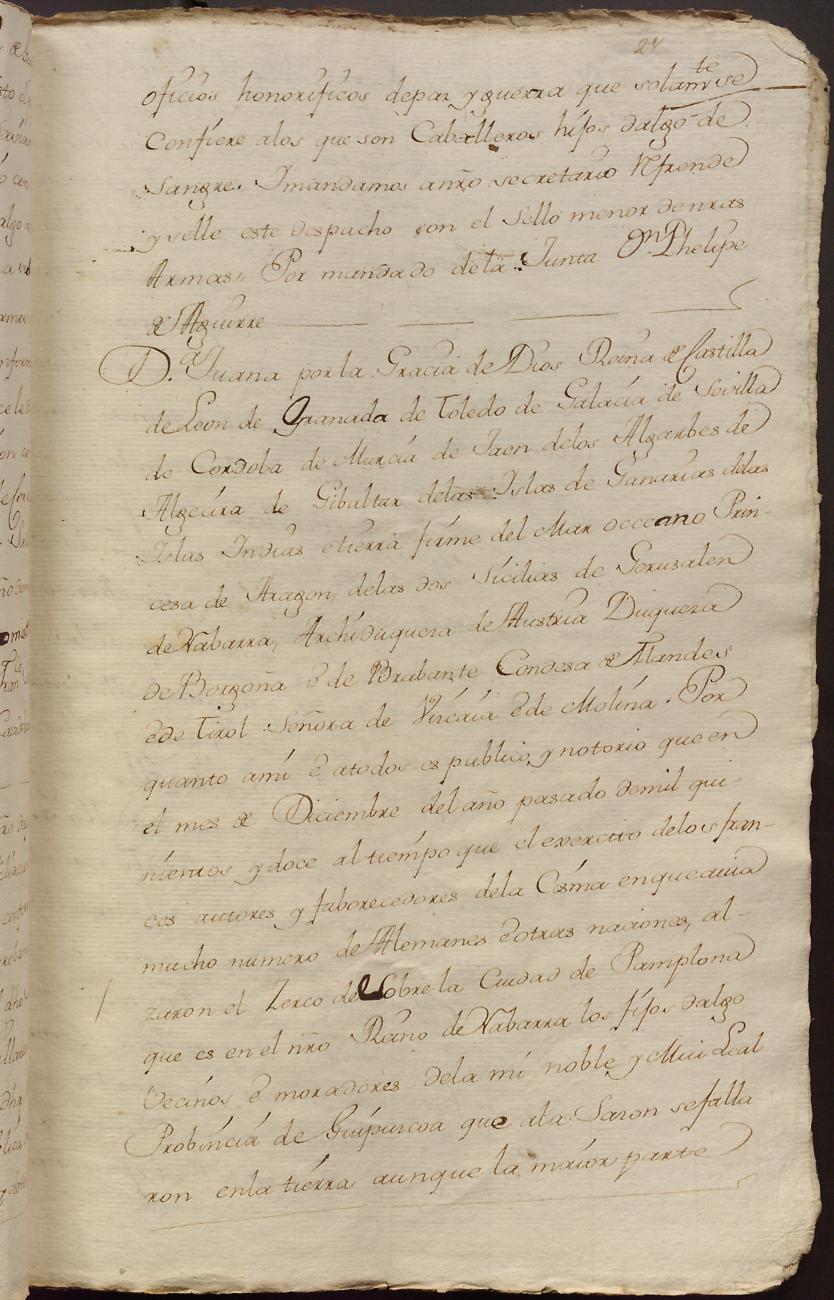 24
oficios honorificos depaz y guerra que solamte se
confiere alos que son Caballeros hijos dalgo de
Sangre. Imandamos anro secretario Rfrende
y selle este despacho con el Sello menor denras
Armas. Por mandado dela Junta Dn Phelipe
de Aguirre
Da. Juana por la Gracia de Dios Reina de Castilla
de Leon de Granada de Toledo de Galacia de Sevilla
de Cordoba de Murcia de Jaen delos Algarbes de
Algecira de Gibultar delas Islas de Canarias delas
Islas Indias etierra firme del Mar occeano Prin-
cesa de Aragon, delas dos Sicilias de Gerusalen
de Nabarra, Archiduquesa de Austria Duquesa
de Borgoña é de Brabante Condesa de Flandes
éde Tirol Señora de Vizcaia éde Molina. Por
quanto amí é atodos es publico y notorio que en
el mes de Diciembre del año pasado demil qui-
nientos y doce al tiempo que el exercito delos fran-
ces autores y faborecedores dela Cisma enque auia
mucho numero de Alemanes éotras naciones, al-
zaron el Zerco de sobre la Ciudad de Pamplona
que es en el nro Reino de Nabarra los fijos dalgo
Vecinos é moradores dela mi noble y Mui Leal
Probincia de Guipuzcoa que ala Sazon se falla
ron enla tierra aunque la maior parte